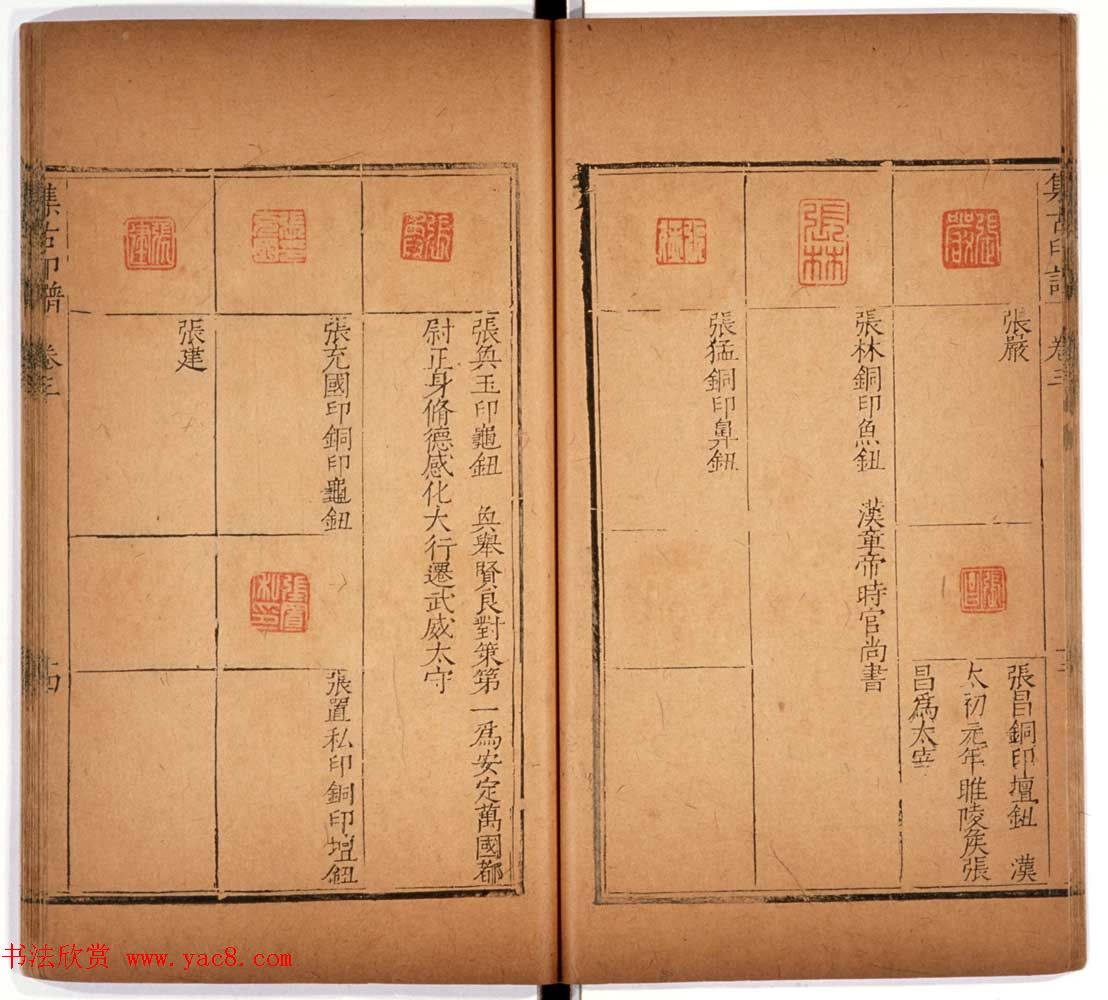 集古印譜 卷三
張嚴
張嚴
張昌
張昌銅印壇鈕 漢
太初元年睢陵矦張
昌爲太宰
張林
張林銅印魚鈕 漢章帝時官尚書
張猛
張猛銅印鼻鈕
張奐
張奐玉印龜鈕 奐舉賢良對策第一爲安定萬國都
尉正身脩德感化大行遷武威太守
張充國印
張充國印銅印龜鈕
張置私印
張置私印銅印壇鈕
張建
張建
集古印譜 卷三 十四
书法欣赏 www.yac8.com